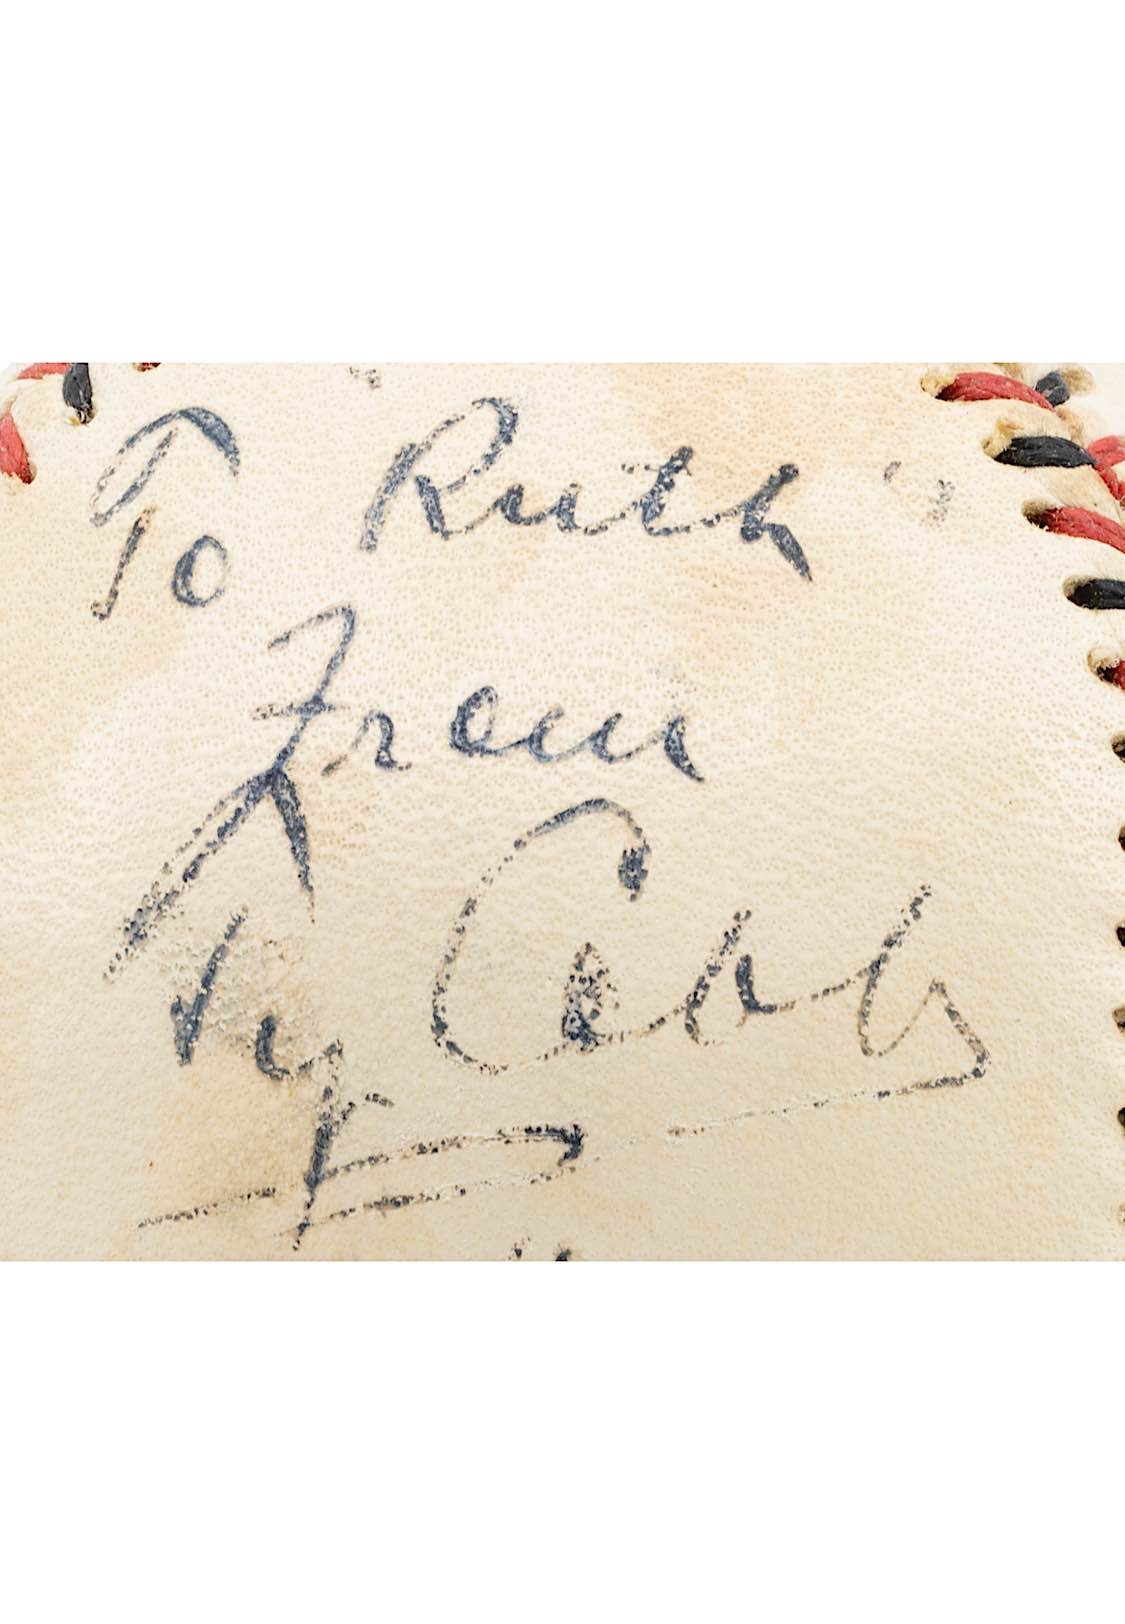 To Ruth
From
Ty Cobb